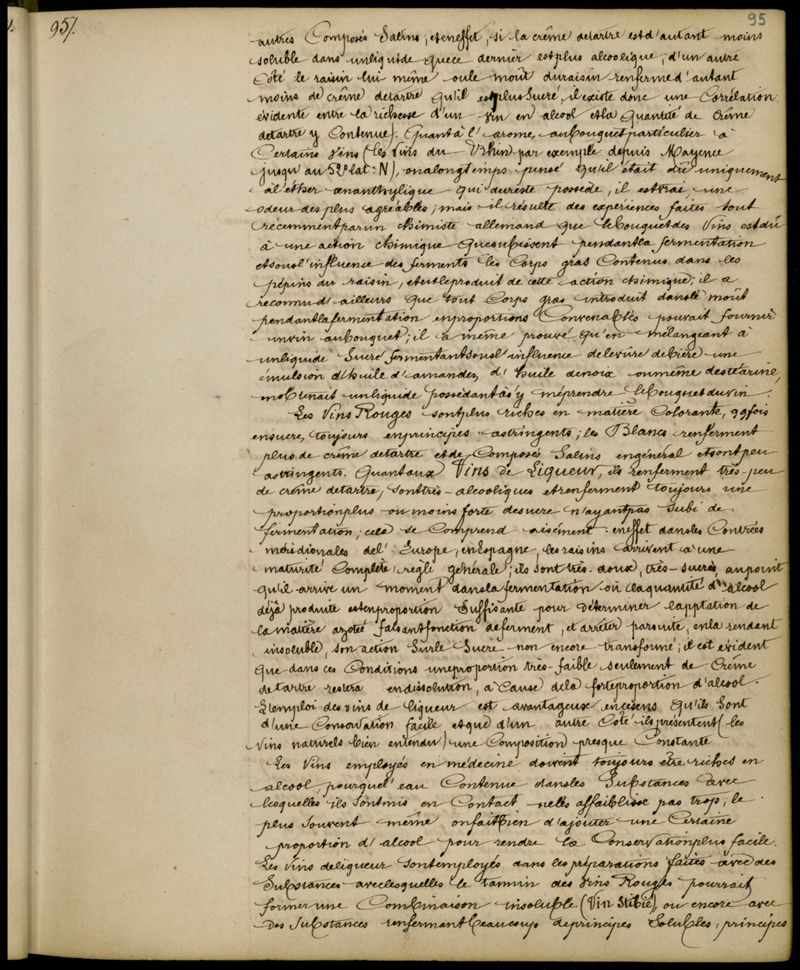 95/.
95
autres Composés Salins; et en effet, si la crême de tartre est d'autant moins
soluble dans un liquide que ce dernier est plus alcoolique, d'un autre
Côté le raisin lui même ou le moût du raisin renferme d'autant
moins de crême de tartre qu'il est plus Sucré, il existe donc une Corrélation
évidente entre la richesse d'un vin en alcool et la Quantité de Crême
de tartre y Contenue. Quant à l'arome, au bouquet particulier à
Certains vins (les vins du Rhin par exemple depuis Mayence
jusqu'au 52° lat: N), on a longtemps pensé qu'il était dû uniquement
à l'éther œnanthylique qui du reste possède, il est vrai une
odeur des plus agréables; mais il résulte des expériences faites tout
récemment par un chimiste allemand que le bouquet des vins est dû
à une action chimique que subissent pendant la fermentation
et sous l'influence des ferments les Corps gras Contenus dans les
pépins du raisin, et est le produit de cette action chimique; il a
reconnu d'ailleurs que tout Corps gras introduit dans le moût
pendant la fermentation en proportions Convenables pouvait fournir
un vin au bouquet; il a même prouvé qu'en mélangeant à
un liquide Sucré fermentant sous l'influence de levure de bière une
émulsion d'huile d'amandes, d'huile de noix ou même de stéarine,
on obtenait un liquide possédant à s'y méprendre le bouquet du vin.
Les Vins Rouges sont plus riches en matière Colorante, qqfois
en sucre, toujours en principes astringents; les Blancs renferment
plus de crême de tartre et de Composés Salins en général et sont peu
astringents. Quant aux Vins de Liqueur, ils renferment très-peu
de crême de tartre, sont très-alcooliques et renferment toujours une
proportion plus ou moins forte de sucre n'ayant pas subi de
fermentation; cela se Comprend aisément: en effet dans les Contrées
méridionales de l'Europe, en Espagne, les raisins arrivent à une
maturité Complète, règle générale; ils sont très-doux, très-sucrés, au point
qu'il arrive un moment dans la fermentation où la quantité d'alcool
déjà produite est en proportion Suffisante pour déterminer la
la matière azotée faisant fonction de ferment, et arrêter par suite, en la rendant
insoluble, son action Sur le Sucre non encore transformé; il est évident
que dans ces Conditions une proportion très-faible seulement de Crême
de tartre restera en dissolution, à cause de la forte proportion d'alcool.
L'emploi des vins de liqueur est avantageux en ce sens qu'ils Sont
d'une Conservation facile et que d'un autre Côté ils présentent (les
vins naturels bien entendu) une Composition presque Constante
Les Vins employés en médecine doivent toujours être riches en
alcool, pour que l'eau Contenue dans les Substances avec
lesquelles ils sont mis en Contact ne les affaiblisse pas trop; le
plus souvent même on fait bien d'ajouter une Certaine
proportion d'alcool pour rendre la Conservation plus facile.
Les vins de liqueur sont employés dans les préparations faites avec des
Substances avec lesquelles le tannin des vins Rouges pourrait
former une Combinaison insoluble (Vin Stibié), ou encore avec
des Substances renfermant beaucoup de principes Solubles, principes